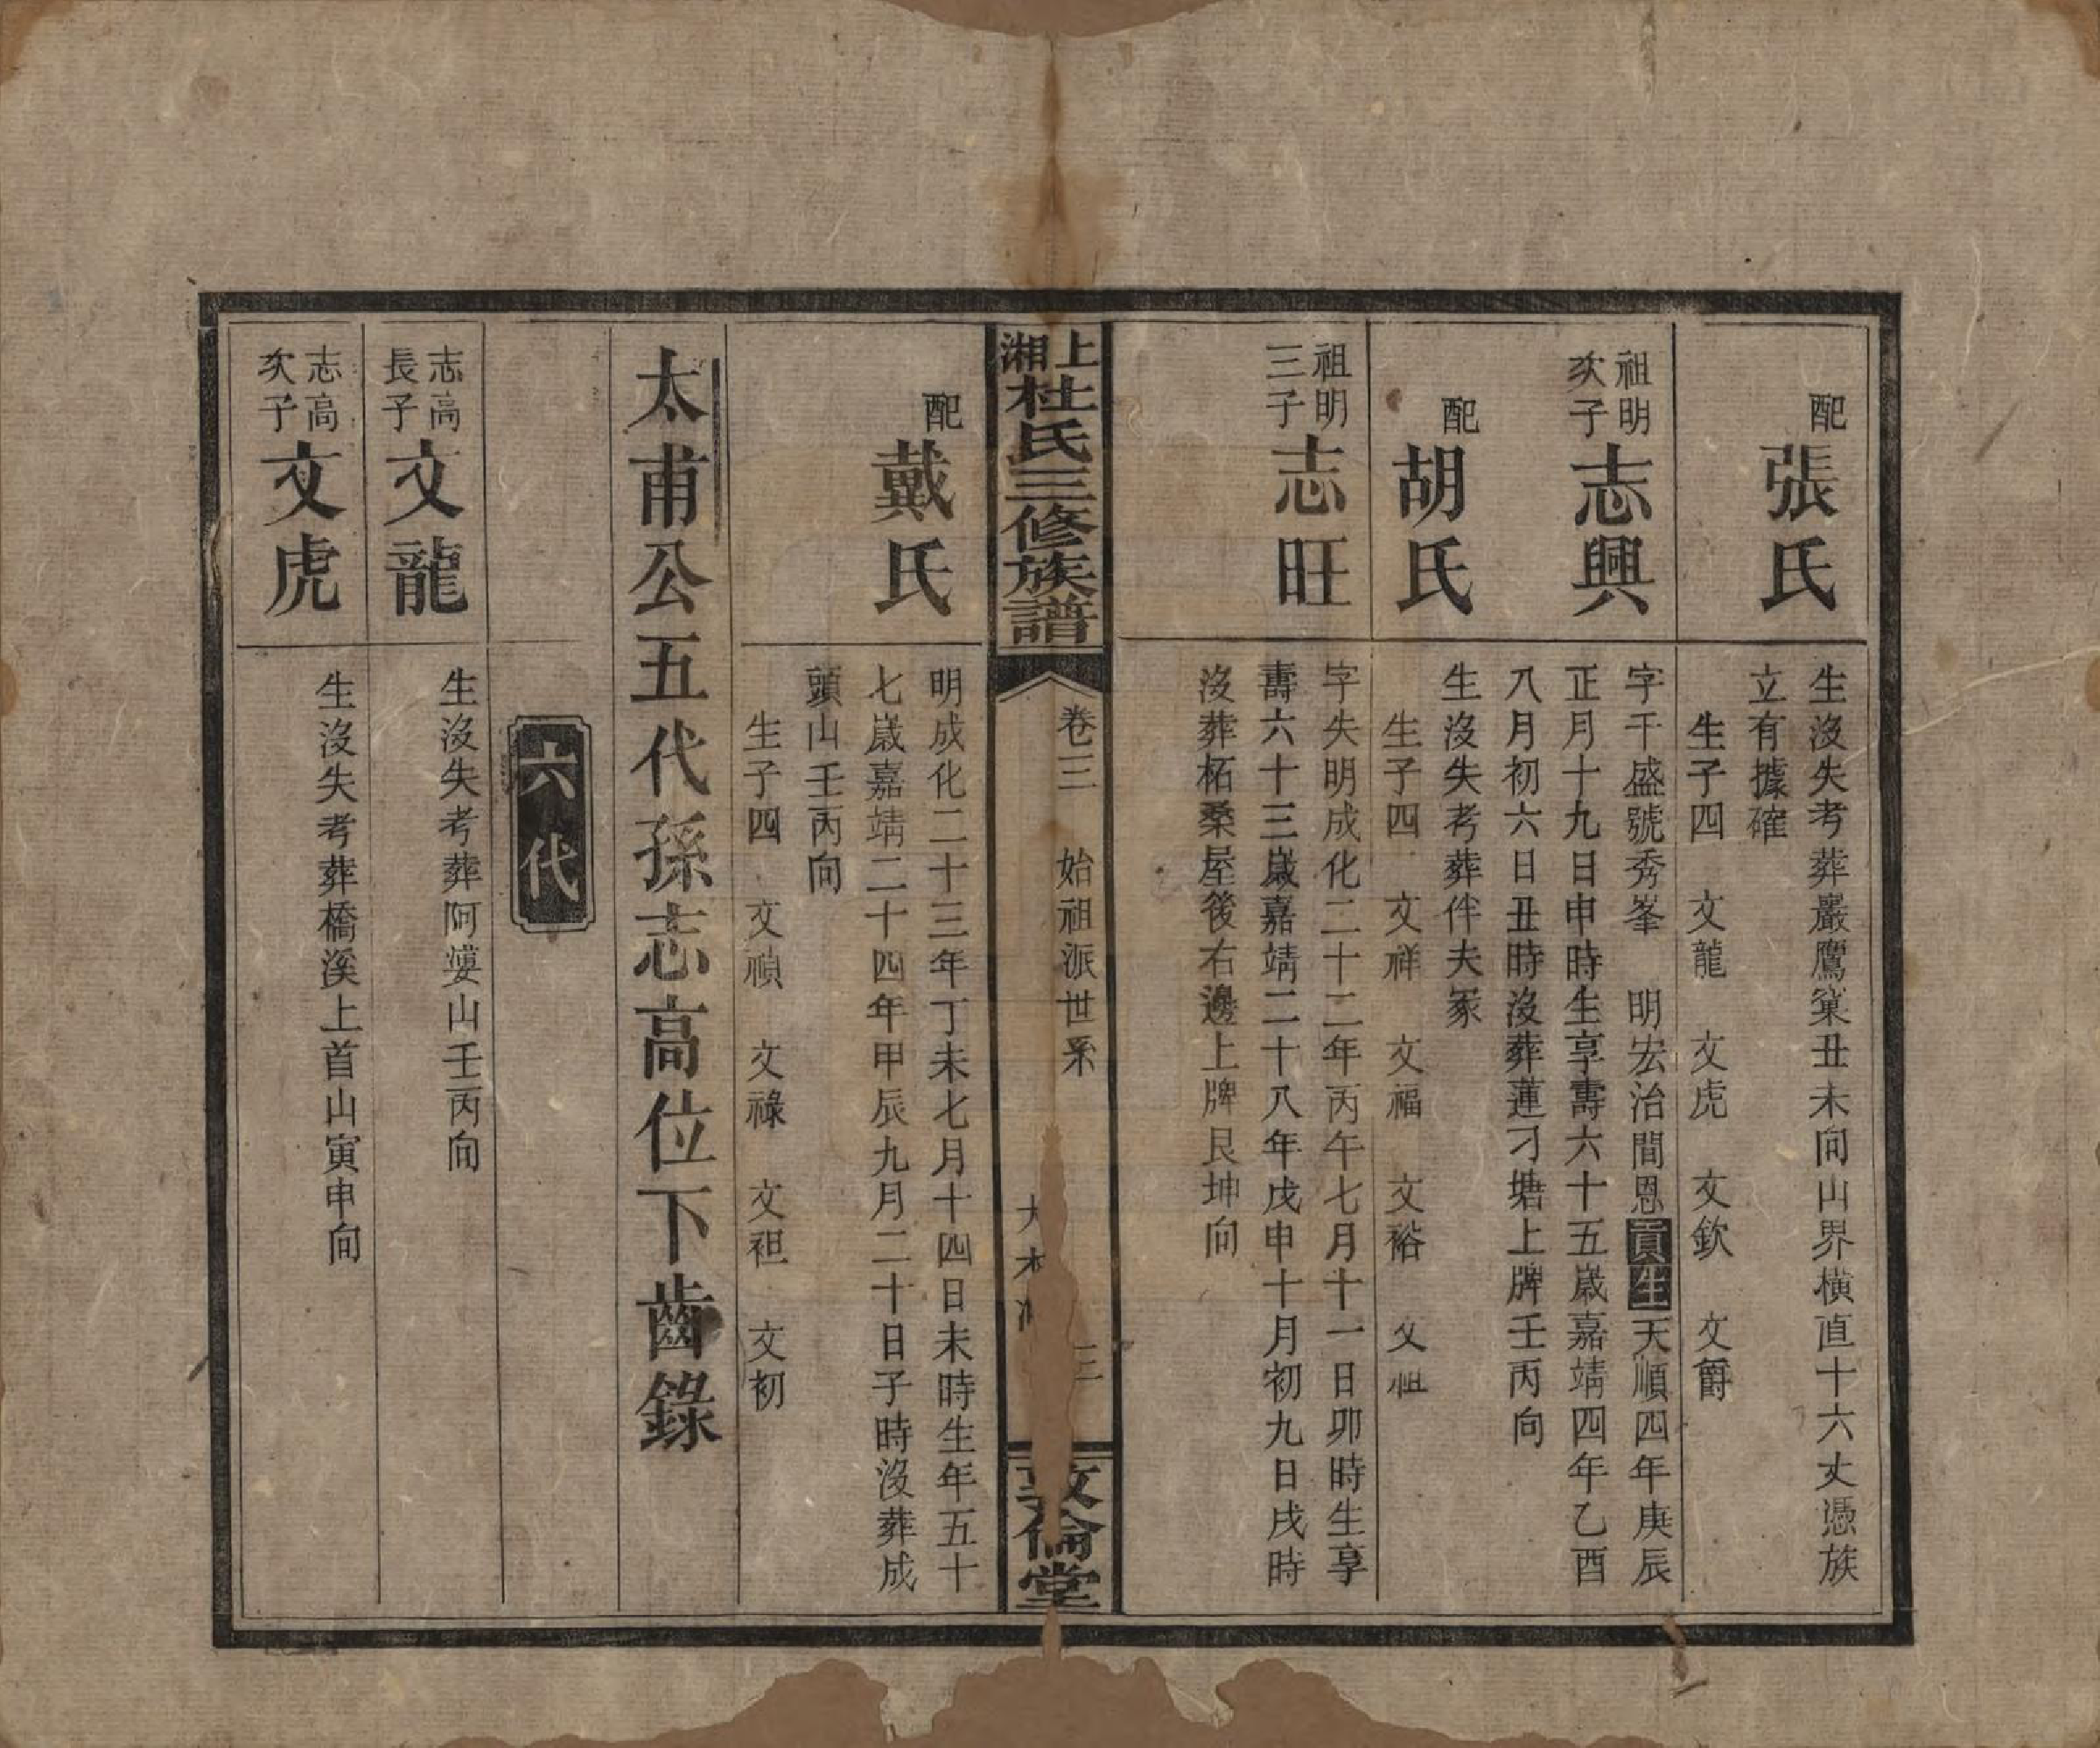 配
張氏
生沒失考葬巖鷹窠丑未向山界橫直十六丈憑族
立有據確
生子四 文龍 文虎 文欽 文爵
祖明
次子
志興
字千盛號秀峯 明宏治間恩貢生天順四年庚辰
正月十九日申時生享壽六十五歲嘉靖四年乙酉
八月初六日丑時沒葬蓮刁塘上牌壬丙向
配
胡氏
生沒失考葬伴夫冢
生子四 文祥 文福 文裕 文祖
祖明
三子
志旺
字失明成化二十二年丙午七月十一日卯時生享
壽六十三歲嘉靖二十八年戊申十月初九日戌時
沒葬柘桑屋後右邊上牌艮坤向
上湘杜氏三修族譜
卷三 始祖派世系
大木
三
敦倫堂
配
戴氏
明成化二十三年丁未七月十四日未時生年五十
七歲嘉靖二十四年甲辰九月二十日子時沒葬成
頭山壬丙向
生子四 文禎 文祿 文袒 文初
太甫公五代孫志高位下齒錄
六代
志高
長子
文龍
生沒失考葬阿婆山壬丙向
志高
次子
文虎
生沒失考葬橋溪上首山寅申向